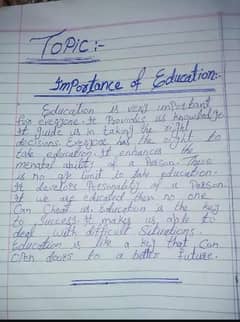 TOPIC :-
Importance of Education:-
Education is very important
for everyone. It Provides us knowledge
It guide us in taking the right
decisions. Everyone has the right to
take education. It enhances the
menatal ability of a Person. There
is no age limit to take education.
It develops Personality of a Person.
If we are educated then no one
Can Cheat us. Education is the key
to Success. It makes us able to
deal with difficult Situations.
Education is like a key that Can
open doors to a better Future.